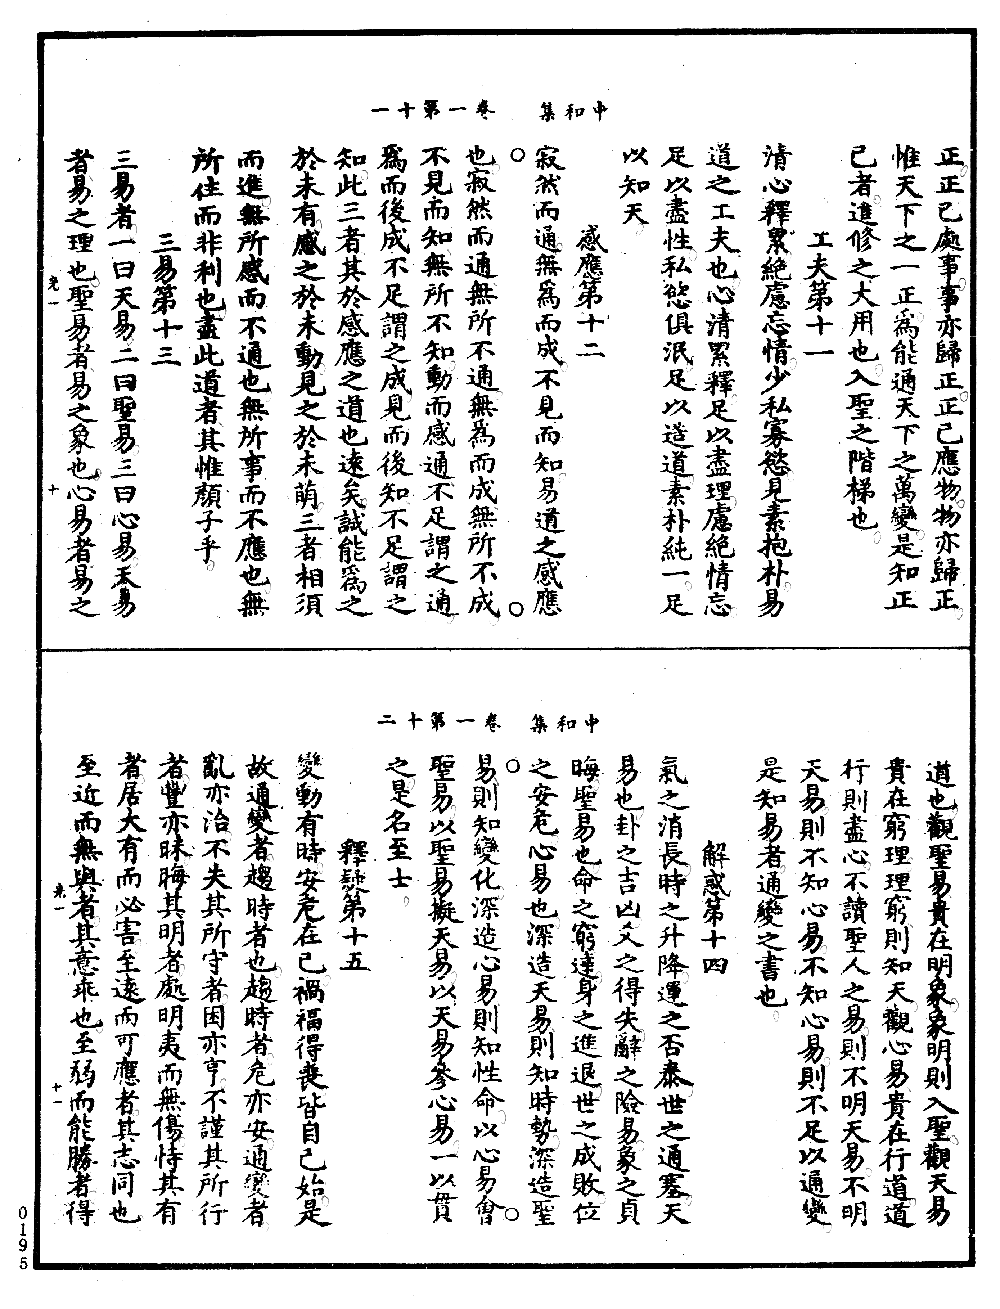 中和集　卷一第十一
正正己處事事亦歸正正己應物物亦歸正
惟天下之一正爲能通天下之萬變是知正
己者進修之大用也入聖之階梯也
工夫第十一
清心釋累絶慮忘情少私寡慾見素抱朴易
道之工夫也心清累釋足以盡理慮絶情忘
足以盡性私慾俱泯足以造道素朴純一足
以知天
感應第十二
寂然而通無爲而成不見而知易道之感應
也寂然而通無所不通無爲而成無所不成
不見而知無所不知動而感通不足謂之通
爲而後成不足謂之成見而後知不足謂之
知此三者其於感應之道也遠矣誠能爲之
於未有感之於未動見之於未萌三者相須
而進無所感而不通也無所事而不應也無
所住而非利也盡此道者其惟顔子乎
三易第十三
三易者一曰天易二曰聖易三曰心易天易
者易之理也聖易者易之象也心易者易之
光一
十
中和集　卷一第十二
道也觀聖易貴在明象象明則入聖觀天易
貴在窮理理窮則知天觀心易貴在行道道
行則盡心不讀聖人之易則不明天易不明
天易則不知心易不知心易則不足以通變
是知易者通變之書也
解惑第十四
氣之消長時之升降運之否泰世之通塞天
易也卦之吉凶爻之得失辭之險易象之貞
晦聖易也命之窮達身之進退世之成敗位
之安危心易也深造天易則知時勢深造聖
易則知變化深造心易則知性命以心易會
聖易以聖易擬天易以天易參心易一以貫
之是名至士
釋疑第十五
變動有時安危在己禍福得喪皆自己始是
故通變者趨時者也趨時者危亦安通變者
亂亦治不失其所守者困亦亨不謹其所行
者豐亦昧晦其明者處明夷而無傷恃其有
者居大有而必害至遠而可應者其志同也
至近而無與者其意乖也至弱而能勝者得
光一
十一
0195